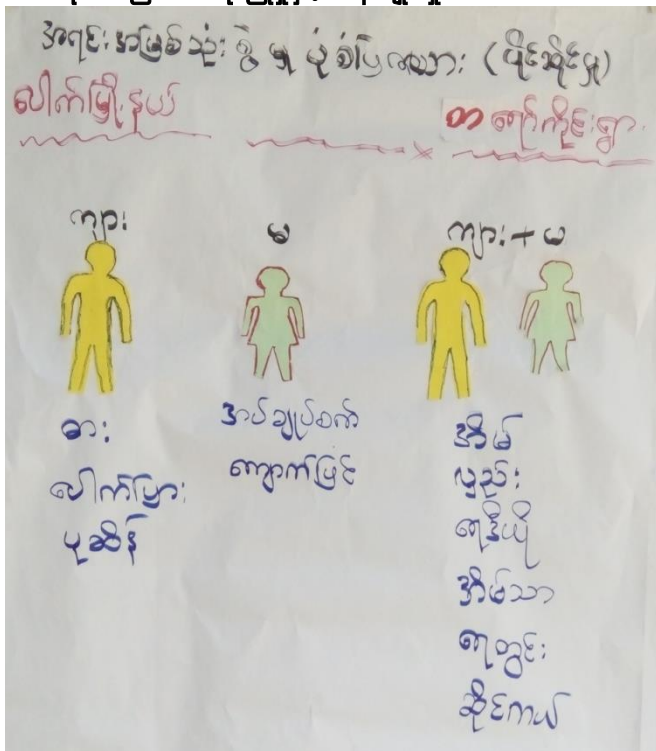 အရင်းအမြစ်သုံးစွဲမှုပုံစံပြဇယား (ပိုင်ဆိုင်မှု)
ပေါက်မြို့နယ်
တရော်ကိုင်းရွာ
ကျား
မ
ကျား+မ
ဓား
ပေါက်ပြား
ပုဆိန်
အပ်ချုပ်စက်
ကျောက်ပြင်
အိမ်
လှည်း
ရေဒီယို
အိမ်သာ
ရေတွင်း
ဆိုင်ကယ်